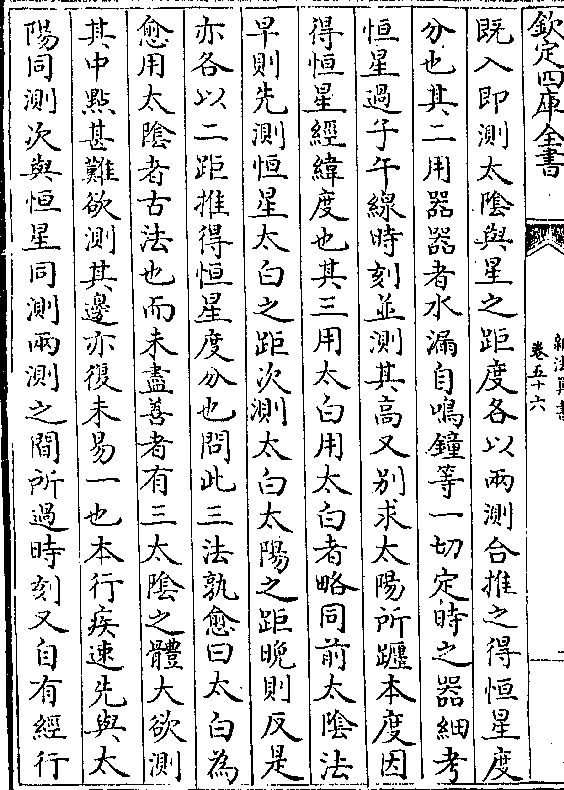 欽定四庫全書
卷五十六
既入即測太陰與星之距度各以兩測合推之得恒星度
分也其二用器器者水漏自鳴鐘等一切定時之器細考
恒星過子午線時刻並測其高又别求太陽所躔本度因
得恒星經緯度也其三用太白用太白者略同前太陰法
早則先測恒星太白之距次測太白太陽之距晚則反是
亦各以二距推得恒星度分也問此三法孰愈曰太白為
愈用太陰者古法也而未盡善者有三太陰之體大欲測
其中㸃甚難欲測其邊亦復未易一也本行疾速先與太
陽同測次與恒星同測兩測之間所過時刻又自有經行